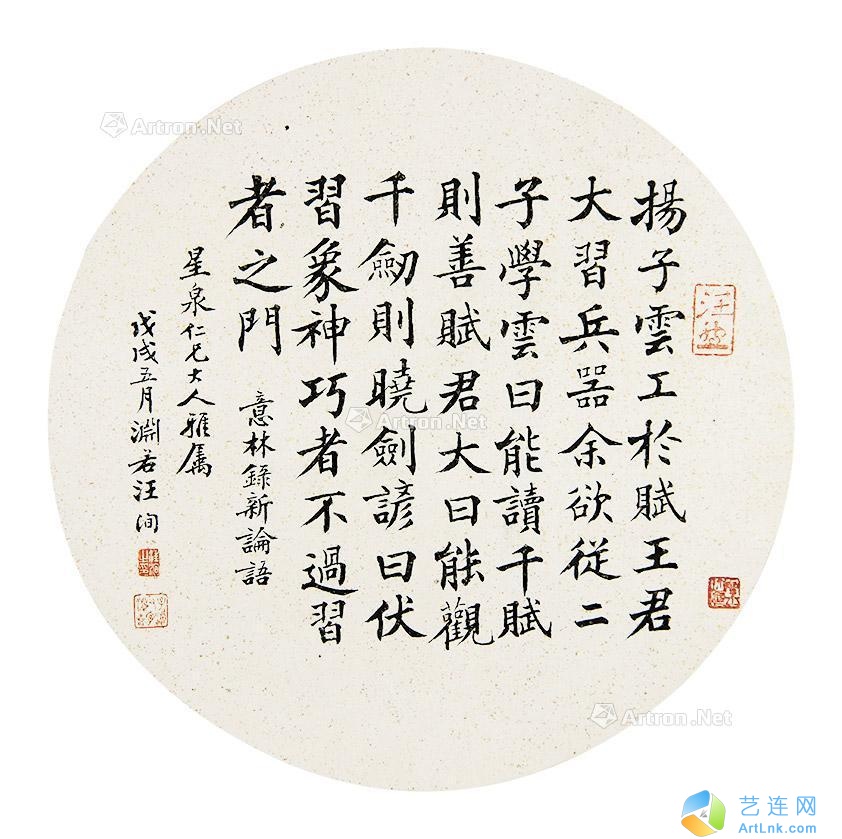 揚子雲工於賦王君
大習兵器余欲從二
子學雲曰能讀千賦
則善賦君大曰能觀
千劒則曉劍諺曰伏
習象神巧者不過習
者之門
意林錄新論語
星泉仁兄大人雅属
戊戌五月淵若汪洵
Artron.Net
Artron.Net
Artron.Net
艺连网
ArtLnk.com